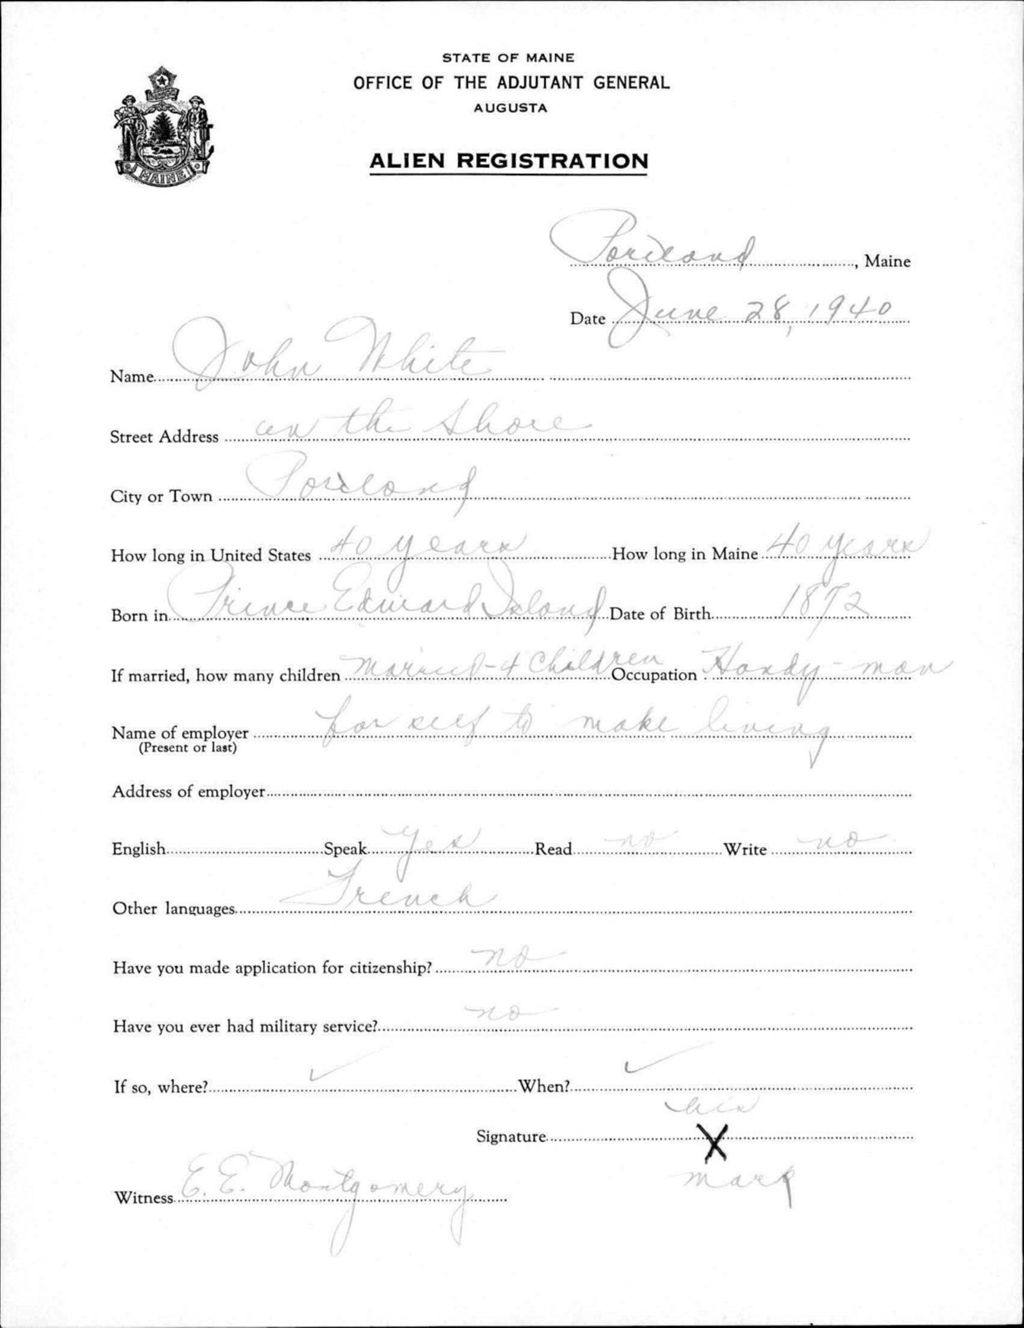 STATE OF MAINE
OFFICE OF THE ADJUTANT GENERAL
AUGUSTA
ALIEN REGISTRATION
MAINE
Portland, Maine
Date June 28, 1940
Name John White
Street Address on the Shore
City or Town Portland
How long in United States 40 years How long in Maine 40 years
Born in Prince Edward Island Date of Birth 1872
If married, how many children Married - 4 Children Occupation Handy-man
Name of employer for self to make living
(Present or last)
Address of employer
English Speak Yes Read no Write no
Other languages French
Have you made application for citizenship? no
Have you ever had military service? no
If so, where? ✓ When? ✓
his
Signature X
mark
Witness E. E. Montgomery